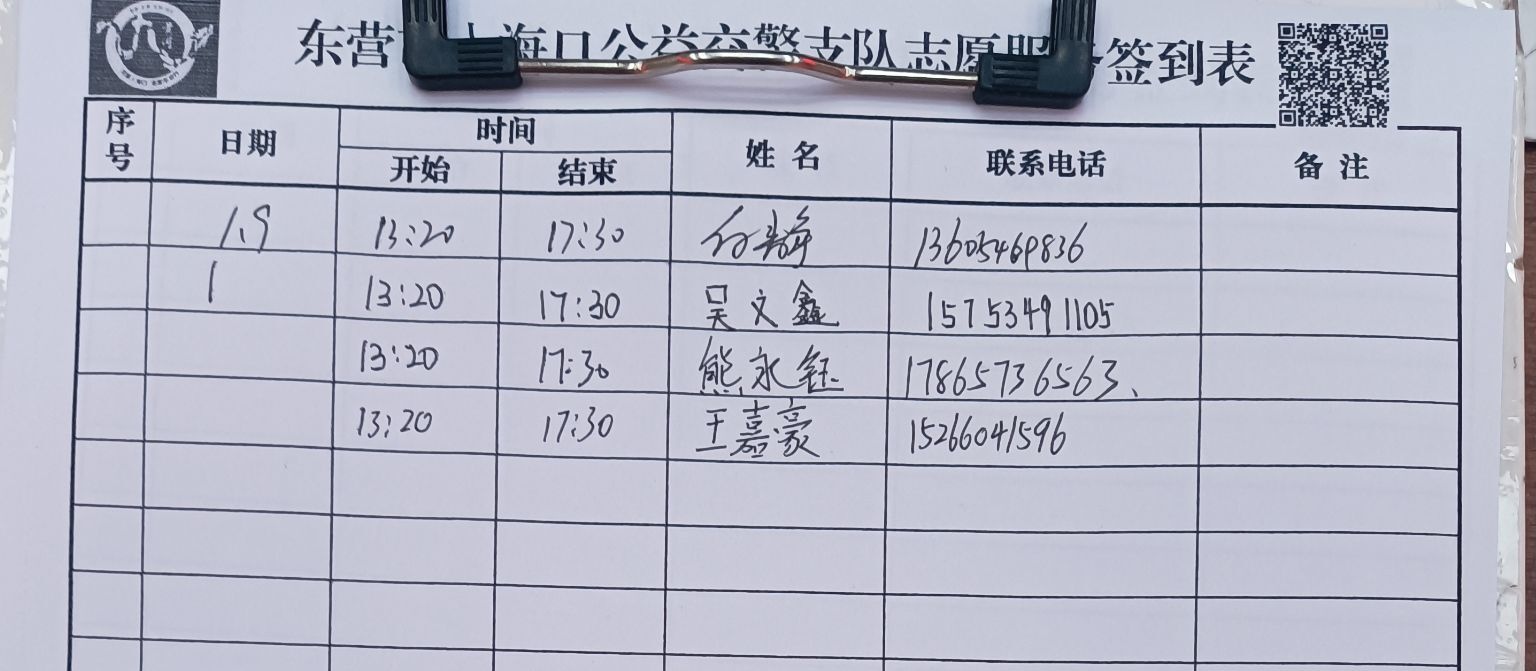 东营 海口公益交警支队志愿服务签到表
序号 日期 时间 姓名 联系电话 备注
开始 结束
1.9 13:20 17:30 13605469836
1 13:20 17:30 吴文鑫 15753491105
13:20 17:30 熊永钰 17865736563、
13:20 17:30 王嘉豪 15266041596